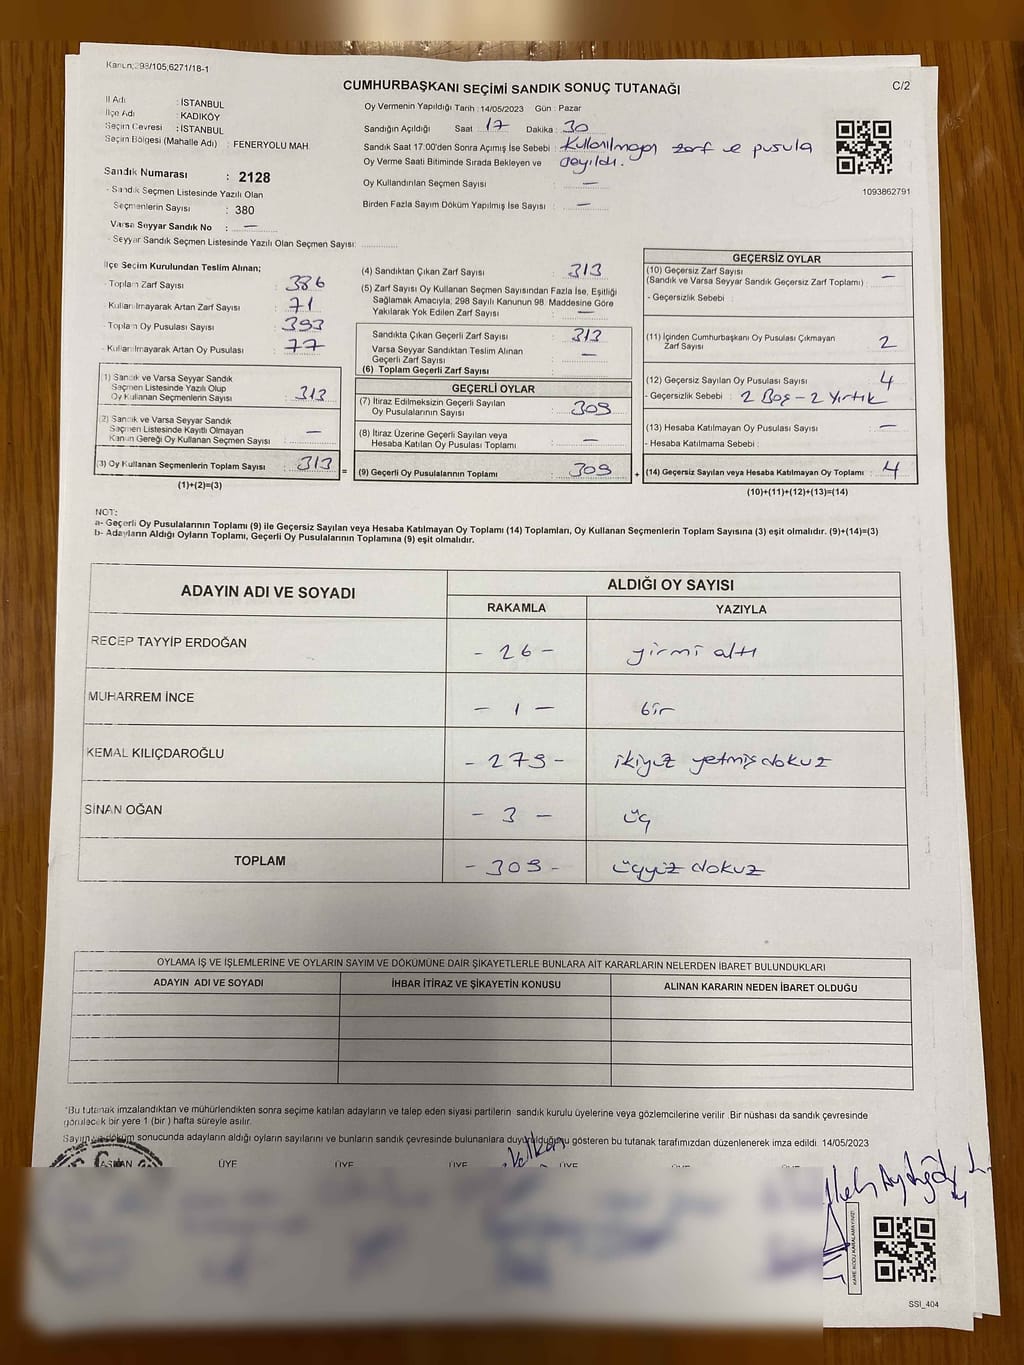 Kanun:298/105,6271/18-1
CUMHURBAŞKANI SEÇİMİ SANDIK SONUÇ TUTANAĞI
C/2
İl Adı : İSTANBUL
İlçe Adı : KADIKÖY
Seçim Çevresi : İSTANBUL
Seçim Bölgesi (Mahalle Adı) : FENERYOLU MAH
Oy Vermenin Yapıldığı Tarih : 14/05/2023 Gün : Pazar
Sandığın Açıldığı Saat : 17 Dakika : 30
Sandık Saat 17:00'den Sonra Açımış İse Sebebi : Kullanılmayan zarf ve pusula
Oy Verme Saati Bitiminde Sırada Bekleyen ve sayıldı.
Oy Kullandırılan Seçmen Sayısı : —
Birden Fazla Sayım Döküm Yapılmış İse Sayısı : —
1093862791
Sandık Numarası : 2128
- Sandık Seçmen Listesinde Yazılı Olan
Seçmenlerin Sayısı : 380
Varsa Seyyar Sandık No : —
- Seyyar Sandık Seçmen Listesinde Yazılı Olan Seçmen Sayısı:
İlçe Seçim Kurulundan Teslim Alınan;
- Toplam Zarf Sayısı : 386
- Kullanılmayarak Artan Zarf Sayısı : 71
- Toplam Oy Pusulası Sayısı : 393
- Kullanılmayarak Artan Oy Pusulası : 77
(1) Sandık ve Varsa Seyyar Sandık
Seçmen Listesinde Yazılı Olup
Oy Kullanan Seçmenlerin Sayısı : 313
(2) Sandık ve Varsa Seyyar Sandık
Seçmen Listesinde Kayıtlı Olmayan
Kanun Gereği Oy Kullanan Seçmen Sayısı : —
(3) Oy Kullanan Seçmenlerin Toplam Sayısı : 313 =
(1)+(2)=(3)
(4) Sandıktan Çıkan Zarf Sayısı : 313
(5) Zarf Sayısı Oy Kullanan Seçmen Sayısından Fazla İse, Eşitliği
Sağlamak Amacıyla, 298 Sayılı Kanunun 98. Maddesine Göre
Yakılarak Yok Edilen Zarf Sayısı : —
Sandıkta Çıkan Geçerli Zarf Sayısı : 313
Varsa Seyyar Sandıktan Teslim Alınan
Geçerli Zarf Sayısı : —
(6) Toplam Geçerli Zarf Sayısı :
GEÇERLİ OYLAR
(7) İtiraz Edilmeksizin Geçerli Sayılan
Oy Pusulalarının Toplamı : 309
(8) İtiraz Üzerine Geçerli Sayılan veya
Hesaba Katılan Oy Pusulası Toplamı : —
(9) Geçerli Oy Pusulalarının Toplamı : 309 +
GEÇERSİZ OYLAR
(10) Geçersiz Zarf Sayısı
(Sandık ve Varsa Seyyar Sandık Geçersiz Zarf Toplamı) : —
- Geçersizlik Sebebi :
(11) İçinden Cumhurbaşkanı Oy Pusulası Çıkmayan
Zarf Sayısı : 2
(12) Geçersiz Sayılan Oy Pusulası Sayısı : 4
- Geçersizlik Sebebi : 2 Boş - 2 Yırtık
(13) Hesaba Katılmayan Oy Pusulası Sayısı : —
- Hesaba Katılmama Sebebi :
(14) Geçersiz Sayılan veya Hesaba Katılmayan Oy Toplamı : 4
(10)+(11)+(12)+(13)=(14)
NOT:
a- Geçerli Oy Pusulalarının Toplamı (9) ile Geçersiz Sayılan veya Hesaba Katılmayan Oy Toplamı (14) Toplamları, Oy Kullanan Seçmenlerin Toplam Sayısına (3) eşit olmalıdır. (9)+(14)=(3)
b- Adayların Aldığı Oyların Toplamı, Geçerli Oy Pusulalarının Toplamına (9) eşit olmalıdır.
ADAYIN ADI VE SOYADI
ALDIĞI OY SAYISI
RAKAMLA YAZIYLA
RECEP TAYYİP ERDOĞAN - 26 - yirmi altı
MUHARREM İNCE - 1 - bir
KEMAL KILIÇDAROĞLU - 279 - ikiyüz yetmiş dokuz
SİNAN OĞAN - 3 - üç
TOPLAM - 309 - üçyüz dokuz
OYLAMA İŞ VE İŞLEMLERİNE VE OYLARIN SAYIM VE DÖKÜMÜNE DAİR ŞİKAYETLERLE BUNLARA AİT KARARLARIN NELERDEN İBARET BULUNDUKLARI
ADAYIN ADI VE SOYADI İHBAR İTİRAZ VE ŞİKAYETİN KONUSU ALINAN KARARIN NEDEN İBARET OLDUĞU
*Bu tutanak imzalandıktan ve mühürlendikten sonra seçime katılan adayların ve talep eden siyasi partilerin sandık kurulu üyelerine veya gözlemcilerine verilir. Bir nüshası da sandık çevresinde
görülecek bir yere 1 (bir) hafta süreyle asılır.
Sayım ve döküm sonucunda adayların aldığı oyların sayılarını ve bunların sandık çevresinde bulunanlara duyurulduğunu gösteren bu tutanak tarafımızdan düzenlenerek imza edildi. 14/05/2023
BAŞKAN ÜYE ÜYE ÜYE ÜYE ÜYE ÜYE
KARE KODU KARALAMAYINIZ!
SSI_404